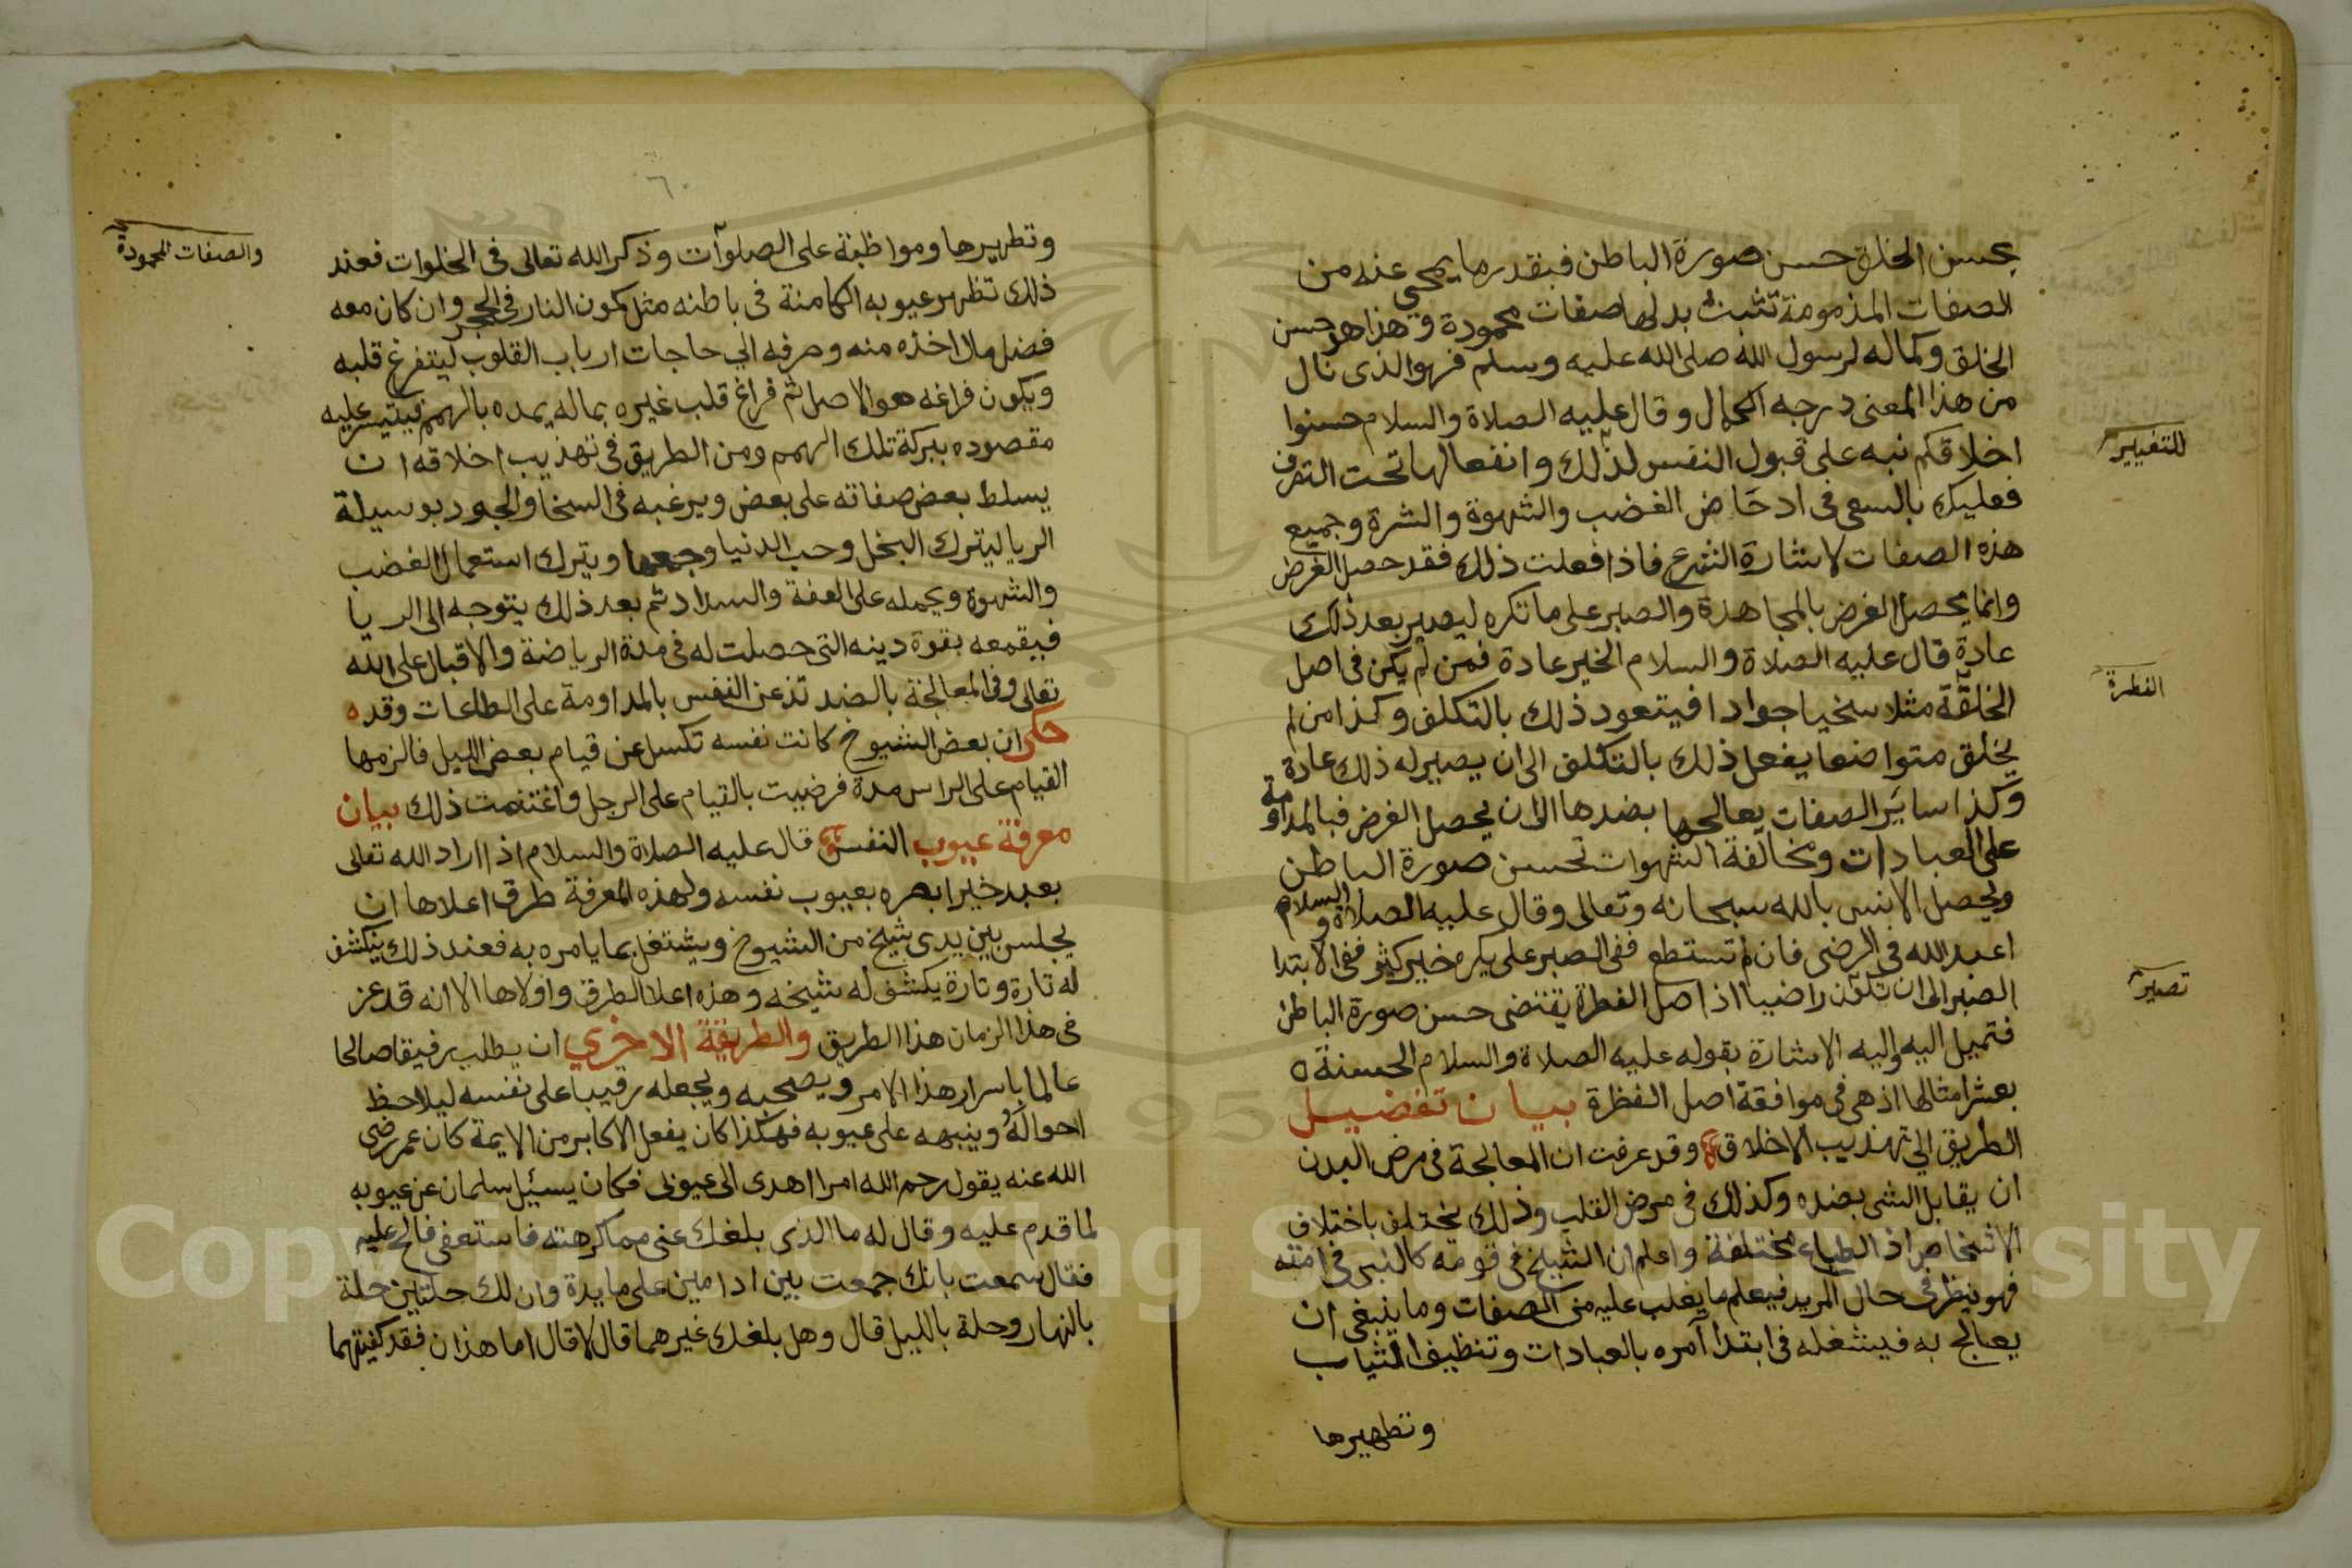 بحسن الخلق حسن صورة الباطن فبقدر ما يمحي عنه من
الصفات المذمومة تثبت بدلها صفات محمودة وهذا هو حسن
الخلق وكماله لرسول الله صلى الله عليه وسلم فهو الذى نال
من هذا المعنى درجه الكمال وقال عليه الصلاة والسلام حسنوا
اخلاقكم نبه على قبول النفس لذلك وانفعالها تحت التصرف
للتغيير
فعليك بالسعى فى ادحاض الغضب والشهوة والشرة وجميع
هذه الصفات لاشارة الشرع فاذا فعلت ذلك فقد حصل الغرض
وانما يحصل الغرض بالمجاهدة والصبر على ما تكره ليصير بعد ذلك
عادة قال عليه الصلاة والسلام الخير عادة فمن لم يكن فى اصل
الفطرة
الخلقة مثلا سخيا جوادا فيتعود ذلك بالتكلف وكذا من لم
يخلق متواضعا يفعل ذلك بالتكلف الى ان يصير له ذلك عادة
وكذا ساير الصفات يعالجها بضدها الى ان يحصل الغرض فبالمداومة
على العبادات ومخالفة الشهوات تحسن صورة الباطن
ويحصل الانس بالله سبحانه وتعالى وقال عليه الصلاة والسلام
اعبد الله فى الرضى فان لم تستطع ففى الصبر على يكره خير كثير ففى الابتدا
الصبر الى ان تكون راضيا اذ اصل الفطرة يقتضى حسن صورة الباطن
تصير
فتميل اليه واليه الاشارة بقوله عليه الصلاة والسلام الحسنة
بعشر امثالها اذ هى فى موافقة اصل الفطرة بيان تفضيل
الطريق الي تهذيب الاخلاق وقد عرفت ان المعالجة فى مرض البدن
ان يقابل الشى بضده وكذلك فى مرض القلب وذلك يختلف باختلاف
الاشخاص اذ الطباع مختلفة واعلم ان الشيخ فى قومه كالنبى فى امته
فهو ينظر فى حال المريد فيعلم ما يغلب عليه من الصفات وما ينبغى ان
يعالج به فيشغله فى ابتدا آمره بالعبادات وتنظيف الثياب
وتطهيرها
٦٠
وتطهيرها ومواظبة على الصلوآت وذكر الله تعالى فى الخلوات فعند
ذلك تظهر عيوبه الكامنة فى باطنه مثل كمون النار فى الحجر وان كان معه
فضل مال اخذه منه وصرفه الي حاجات ارباب القلوب ليتفرغ قلبه
ويكون فراغه هو الاصل ثم فراغ قلب غيره بماله يمده بالهمم فيتيسر عليه
مقصوده ببركة تلك الهمم ومن الطريق فى تهذيب اخلاقه ان
يسلط بعض صفاته على بعض ويرغبه فى السخا والجود بوسيلة
الريا ليترك البخل وحب الدنيا وجمعها ويترك استعمال الغضب
والشهوة ويحمله على العفة والسداد ثم بعد ذلك يتوجه الى الريا
فيقمعه بقوة دينه التى حصلت له فى مدة الرياضة والاقبال على الله
تعالى وفى المعالجة بالضد تذعن النفس بالمداومة على الطاعات وقد
حكى ان بعض الشيوخ كانت نفسه تكسل عن قيام بعض الليل فالزمها
القيام على الراس مدة فرضيت بالقيام على الرجل واغتنمت ذلك بيان
معرفة عيوب النفس قال عليه الصلاة والسلام اذا اراد الله تعالى
بعبد خيرا بصره بعيوب نفسه ولهذه المعرفة طرق اعلاها ان
يجلس بين يدى شيخ من الشيوخ ويشتغل بما يامره به فعند ذلك ينكشف
له تارة وتارة يكشف له شيخه وهذه اعلا الطرق واولاها الا انه قد عز
فى هذا الزمان هذا الطريق والطريقة الاخري ان يطلب رفيقا صالحا
عالما باسرار هذا الامر ويصحبه ويجعله رقيبا على نفسه ليلاحظ
احواله وينبهه على عيوبه فهكذا كان يفعل الاكابر من الايمة كان عمر رضى
الله عنه يقول رحم الله امرا اهدى الى عيوبى فكان يسيل سلمان عن عيوبه
لما قدم عليه وقال له ما الذى بلغك عنى مما كرهته فاستعفى فالح عليه
فقال سمعت بانك جمعت بين ادامين على مايدة وان لك حلتين حلة
بالنهار وحلة بالليل قال وهل بلغك غيرهما قال لا قال اما هذان فقد كفيتهما
والصفات المحمودة
Copyright © King Saud University